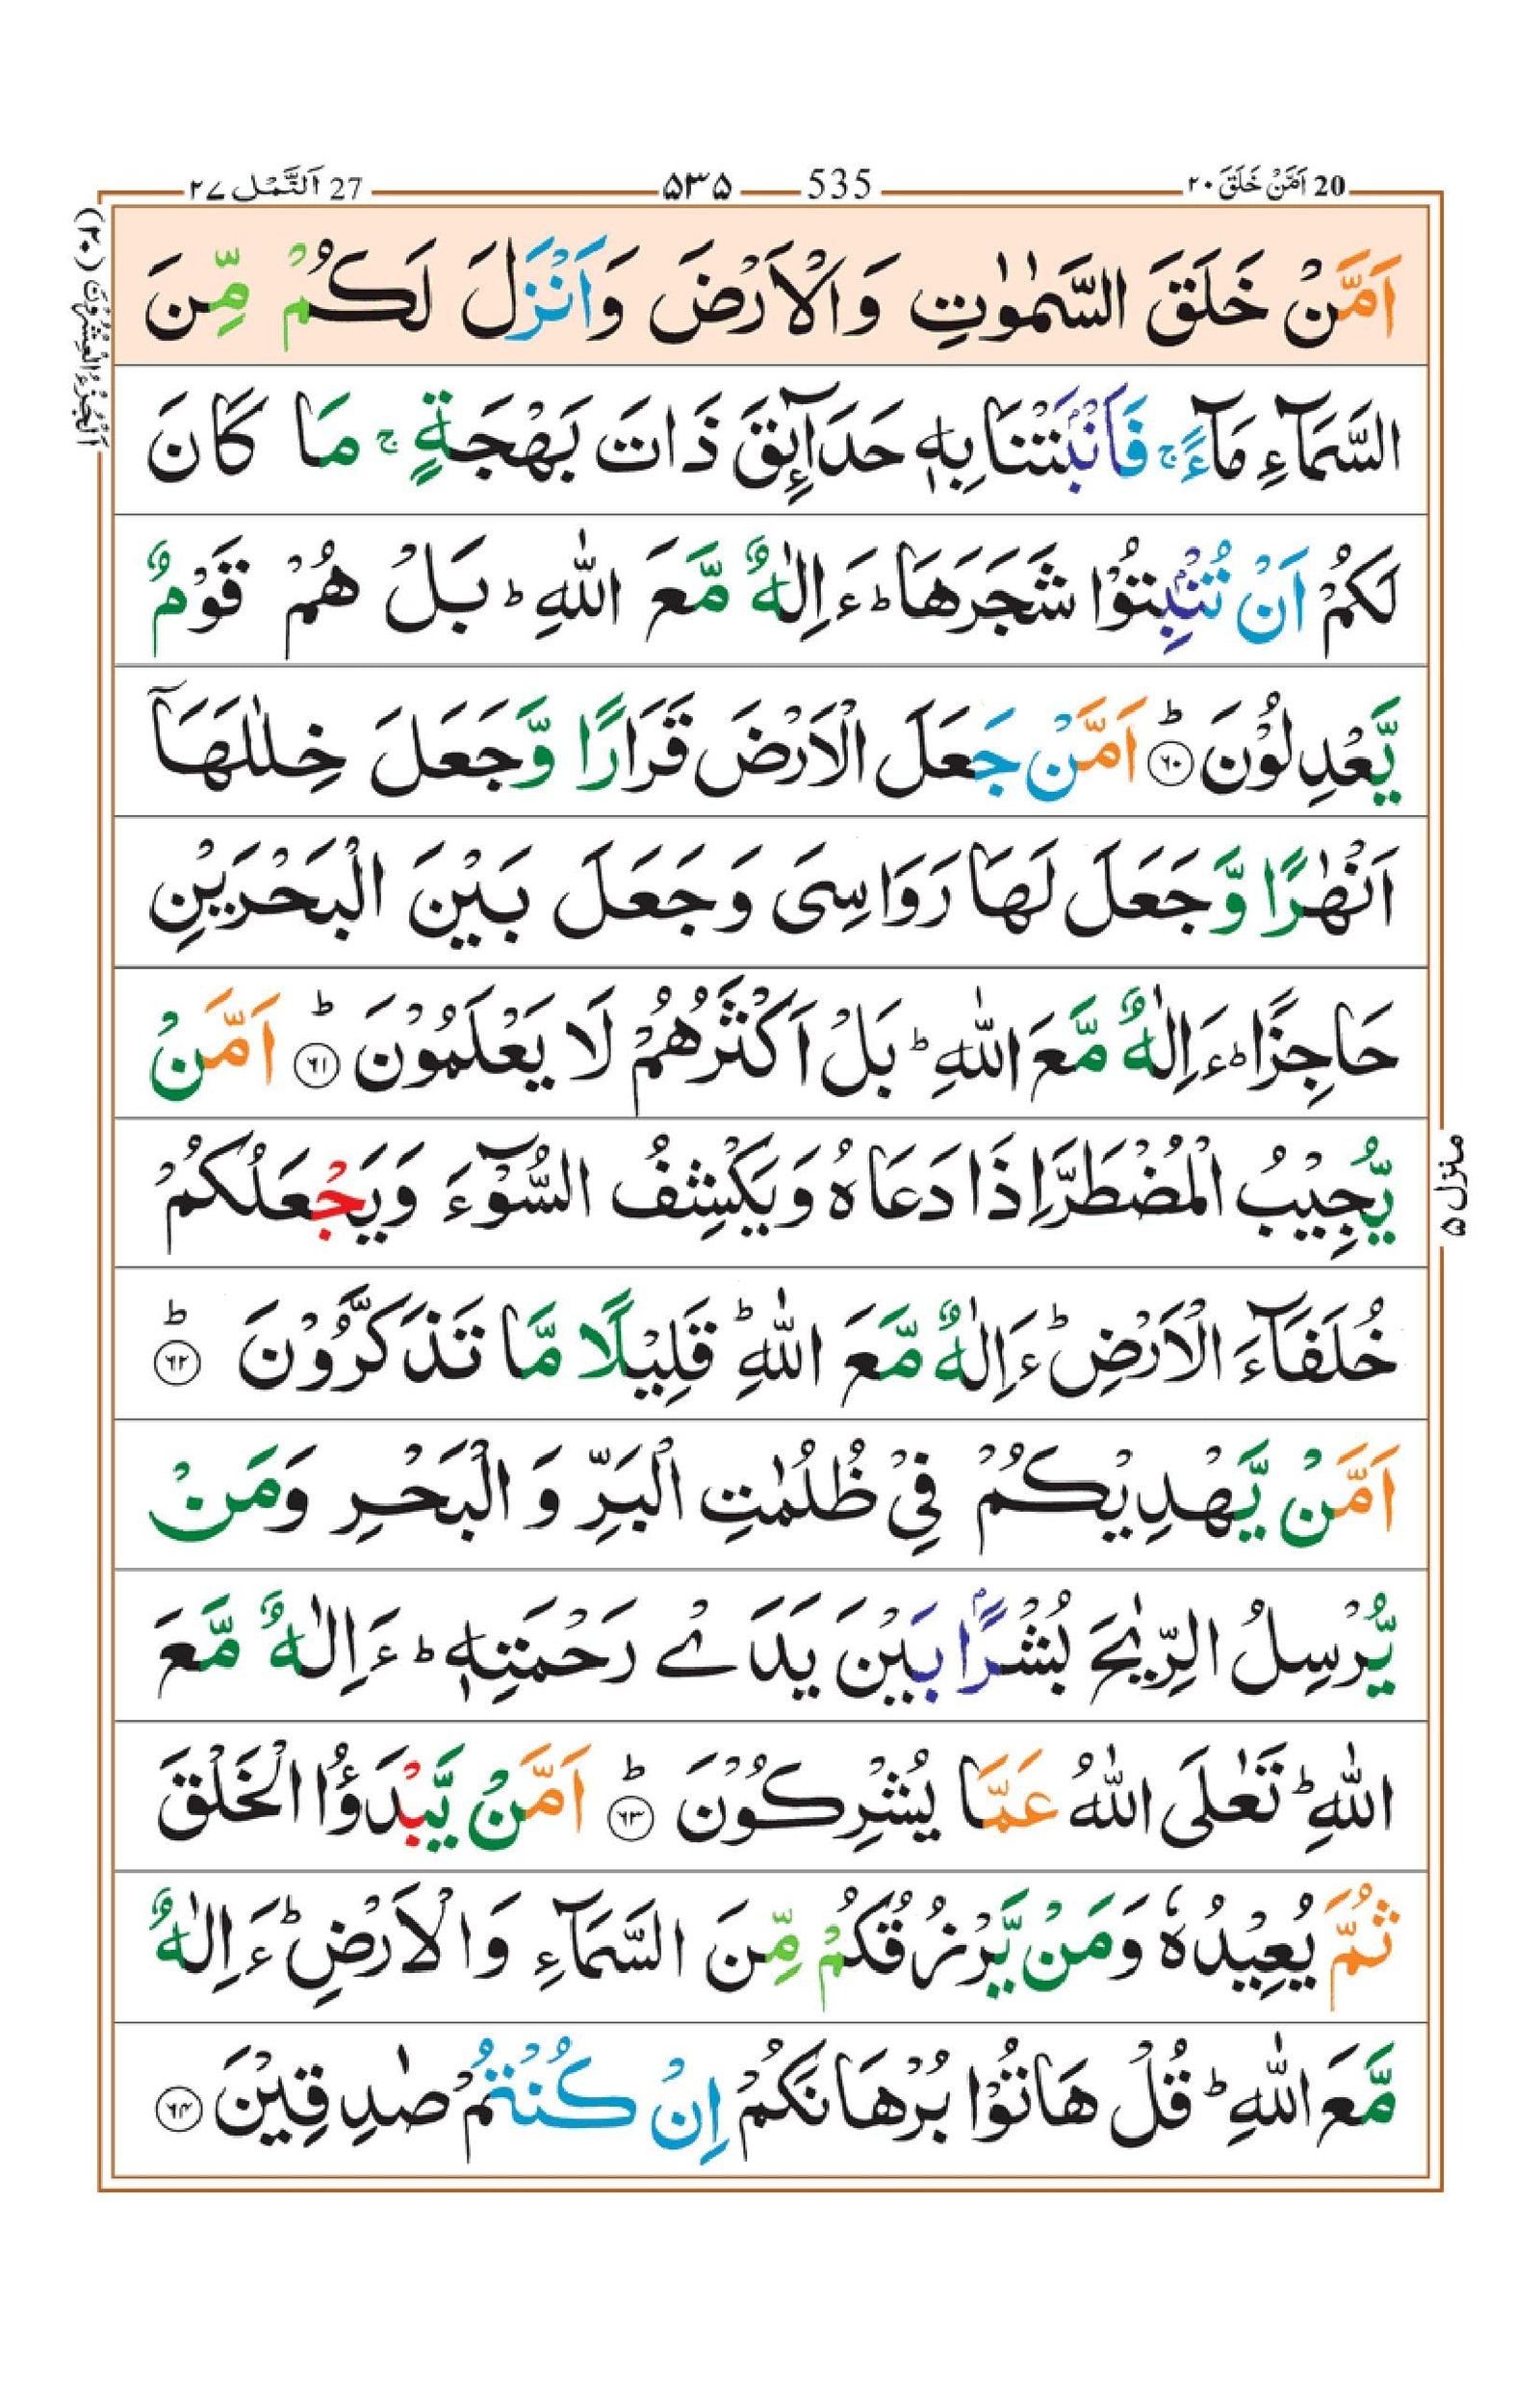 اَلنَّمْل ٢٧ 27
٥٣٥ 535
20 اَمَّنْ خَلَقَ ٢٠
اَمَّنْ خَلَقَ السَّمٰوٰتِ وَالْاَرْضَ وَاَنْزَلَ لَكُمْ مِّنَ
السَّمَآءِ مَآءً ۚ فَاَنْۢبَتْنَا بِهٖ حَدَآئِقَ ذَاتَ بَهْجَةٍ ۚ مَا كَانَ
لَكُمْ اَنْ تُنْۢبِتُوْا شَجَرَهَا ؕ ءَاِلٰهٌ مَّعَ اللّٰهِ ؕ بَلْ هُمْ قَوْمٌ
يَّعْدِلُوْنَ ؕ ﴿٦٠﴾ اَمَّنْ جَعَلَ الْاَرْضَ قَرَارًا وَّجَعَلَ خِلٰلَهَاۤ
اَنْهٰرًا وَّجَعَلَ لَهَا رَوَاسِىَ وَجَعَلَ بَيْنَ الْبَحْرَيْنِ
حَاجِزًا ؕ ءَاِلٰهٌ مَّعَ اللّٰهِ ؕ بَلْ اَكْثَرُهُمْ لَا يَعْلَمُوْنَ ؕ ﴿٦١﴾ اَمَّنْ
يُّجِيْبُ الْمُضْطَرَّ اِذَا دَعَاهُ وَيَكْشِفُ السُّوْٓءَ وَيَجْعَلُكُمْ
خُلَفَآءَ الْاَرْضِ ؕ ءَاِلٰهٌ مَّعَ اللّٰهِ ؕ قَلِيْلًا مَّا تَذَكَّرُوْنَ ؕ ﴿٦٢﴾
اَمَّنْ يَّهْدِيْكُمْ فِىْ ظُلُمٰتِ الْبَرِّ وَ الْبَحْرِ وَمَنْ
يُّرْسِلُ الرِّيٰحَ بُشْرًۢا بَيْنَ يَدَىْ رَحْمَتِهٖ ؕ ءَاِلٰهٌ مَّعَ
اللّٰهِ ؕ تَعٰلَى اللّٰهُ عَمَّا يُشْرِكُوْنَ ؕ ﴿٦٣﴾ اَمَّنْ يَّبْدَؤُا الْخَلْقَ
ثُمَّ يُعِيْدُهٗ وَمَنْ يَّرْزُقُكُمْ مِّنَ السَّمَآءِ وَالْاَرْضِ ؕ ءَاِلٰهٌ
مَّعَ اللّٰهِ ؕ قُلْ هَاتُوْا بُرْهَانَكُمْ اِنْ كُنْتُمْ صٰدِقِيْنَ ﴿٦٤﴾
اَلْجُزْءُ الْعِشْرُوْنَ (٢٠)
منزل ٥